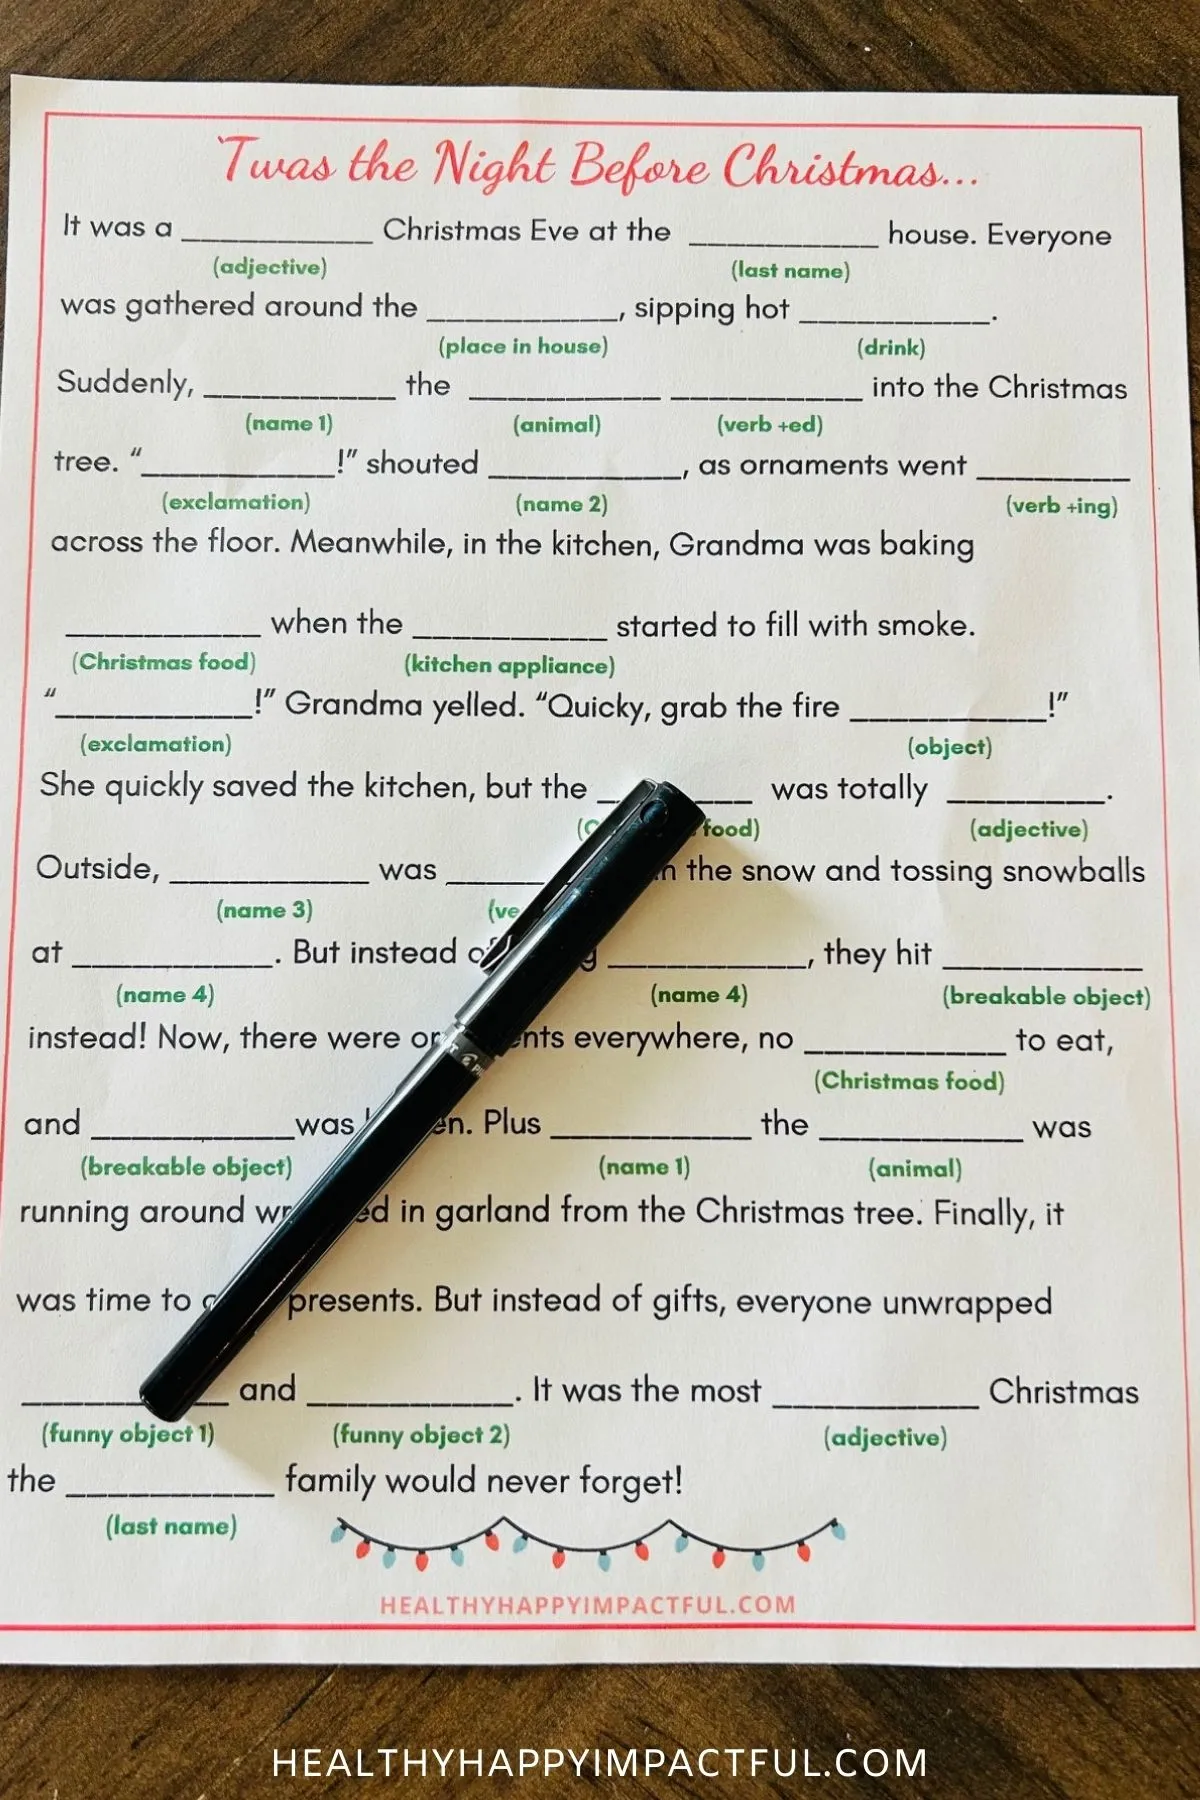 'Twas the Night Before Christmas...
It was a __________ Christmas Eve at the __________ house. Everyone
(adjective) (last name)
was gathered around the __________, sipping hot __________.
(place in house) (drink)
Suddenly, __________ the __________ __________ into the Christmas
(name 1) (animal) (verb +ed)
tree. “__________!” shouted __________, as ornaments went ________
(exclamation) (name 2) (verb +ing)
across the floor. Meanwhile, in the kitchen, Grandma was baking
__________ when the __________ started to fill with smoke.
(Christmas food) (kitchen appliance)
“__________!” Grandma yelled. “Quicky, grab the fire __________!”
(exclamation) (object)
She quickly saved the kitchen, but the ________ was totally ________.
food) (adjective)
Outside, __________ was _____ the snow and tossing snowballs
(name 3)
at __________. But instead __________, they hit __________
(name 4) (name 4) (breakable object)
instead! Now, there were everywhere, no __________ to eat,
(Christmas food)
and __________ was Plus __________ the __________ was
(breakable object) (name 1) (animal)
running around in garland from the Christmas tree. Finally, it
was time to presents. But instead of gifts, everyone unwrapped
__________ and __________. It was the most __________ Christmas
(funny object 1) (funny object 2) (adjective)
the __________ family would never forget!
(last name)
HEALTHYHAPPYIMPACTFUL.COM
HEALTHYHAPPYIMPACTFUL.COM